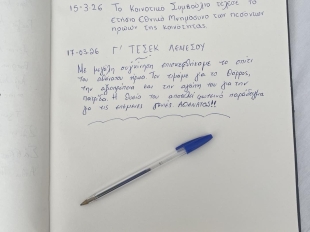 15-3.26 Το Κοινοτικό Συμβούλιο τέλεσε το
Ετήσιο Εθνικό Μνημόσυνο των πεσόντων
ηρώων της κοινότητας
17-03.26 Γ' ΤΕΣΕΚ ΛΕΜΕΣΟΥ
Με μεγάλη συγκίνηση επισκεφθήκαμε το σπίτι
του ήρωα μας. Τον τιμάμε για το θάρρος,
την αξιοπρέπεια και την αγάπη του για την
πατρίδα. Η θυσία του αποτελεί φωτεινό παράδειγμα
για τις επόμενες γενιές ΑΘΑΝΑΤΟΣ!!!